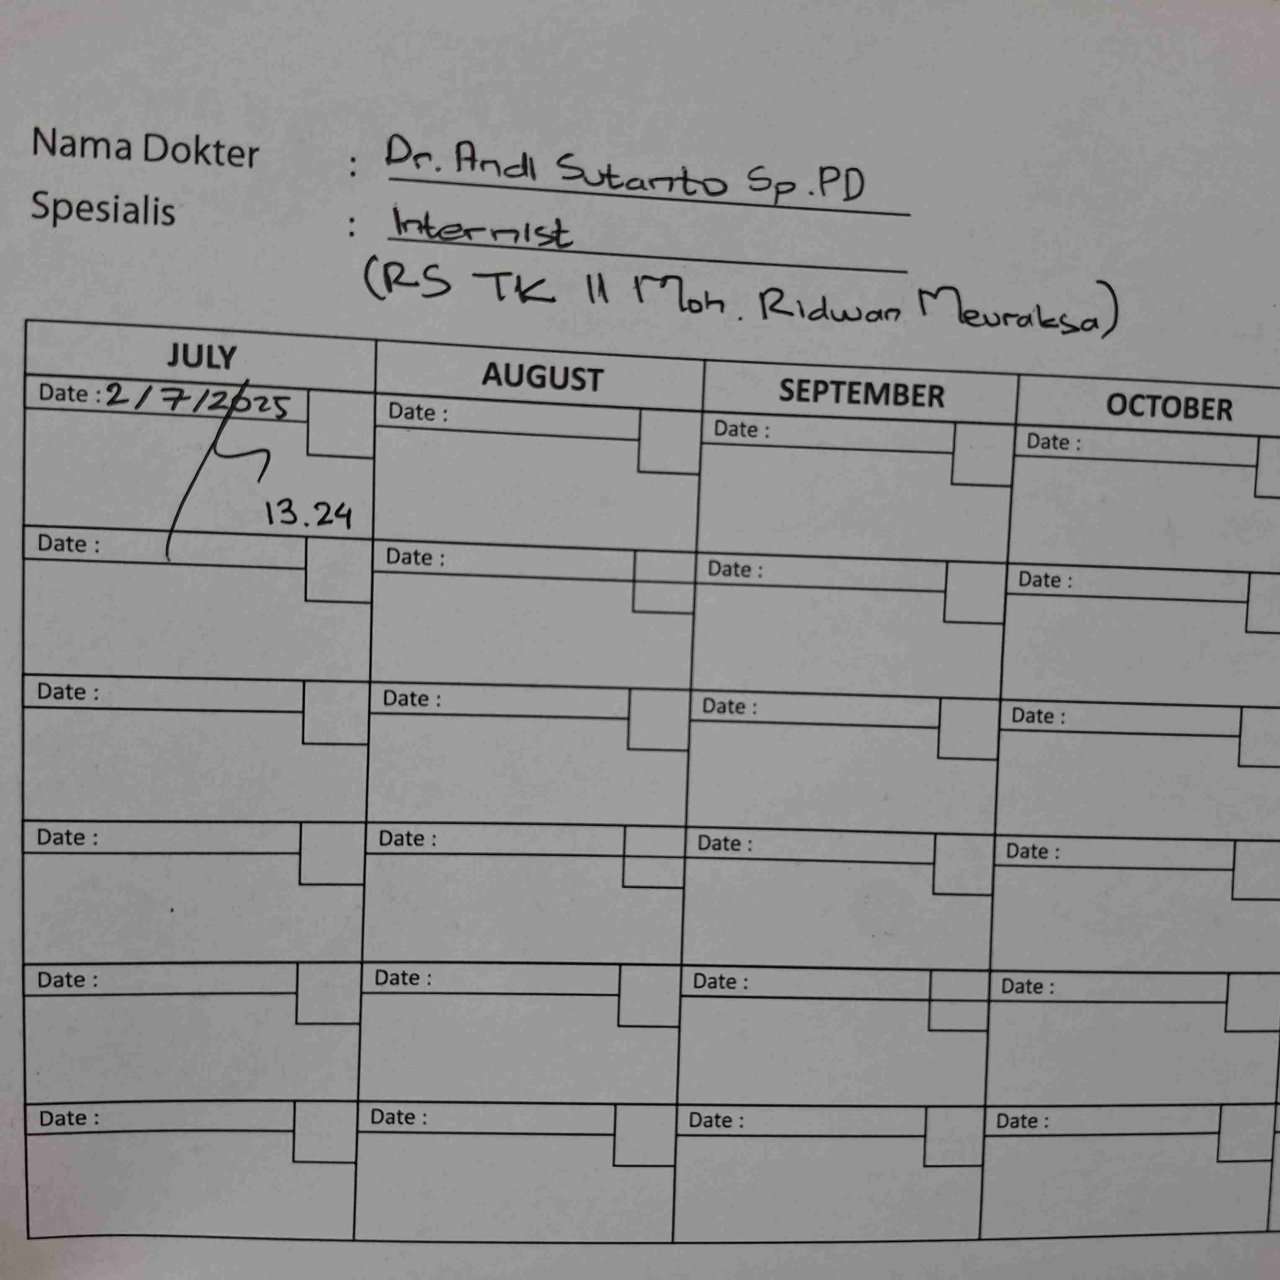 Nama Dokter : Dr. Andi Sutanto Sp.PD
Spesialis : Internist
(RS TK II Moh. Ridwan Meuraksa)
JULY AUGUST SEPTEMBER OCTOBER
Date : 2/7/2025 Date : Date : Date :
13.24
Date : Date : Date : Date :
Date : Date : Date : Date :
Date : Date : Date : Date :
Date : Date : Date : Date :
Date : Date : Date : Date :